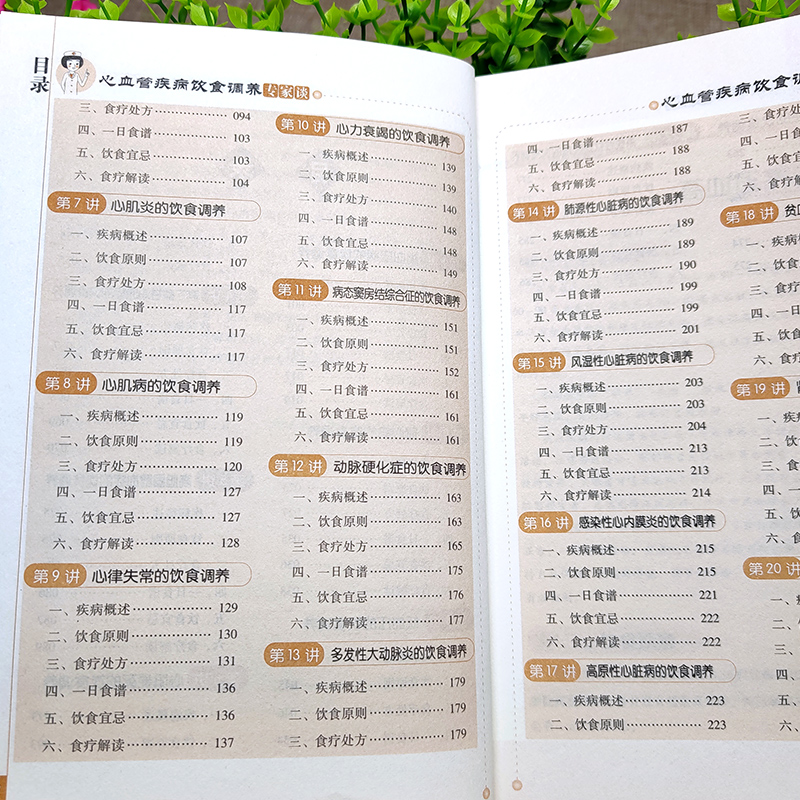 目录
心血管疾病饮食调养专家谈
三、食疗处方 094
四、一日食谱 103
五、饮食宜忌 103
六、食疗解读 104
第7讲 心肌炎的饮食调养
一、疾病概述 107
二、饮食原则 107
三、食疗处方 108
四、一日食谱 117
五、饮食宜忌 117
六、食疗解读 117
第8讲 心肌病的饮食调养
一、疾病概述 119
二、饮食原则 119
三、食疗处方 120
四、一日食谱 127
五、饮食宜忌 127
六、食疗解读 128
第9讲 心律失常的饮食调养
一、疾病概述 129
二、饮食原则 130
三、食疗处方 131
四、一日食谱 136
五、饮食宜忌 136
六、食疗解读 137
第10讲 心力衰竭的饮食调养
一、疾病概述 139
二、饮食原则 139
三、食疗处方 140
四、一日食谱 148
五、饮食宜忌 148
六、食疗解读 149
第11讲 病态窦房结综合征的饮食调养
一、疾病概述 151
二、饮食原则 151
三、食疗处方 152
四、一日食谱 161
五、饮食宜忌 161
六、食疗解读 161
第12讲 动脉硬化症的饮食调养
一、疾病概述 163
二、饮食原则 163
三、食疗处方 165
四、一日食谱 175
五、饮食宜忌 176
六、食疗解读 177
第13讲 多发性大动脉炎的饮食调养
一、疾病概述 179
二、饮食原则 179
三、食疗处方 179
心血管疾病饮食调
四、一日食谱 187
五、饮食宜忌 188
六、食疗解读 188
第14讲 肺源性心脏病的饮食调养
一、疾病概述 189
二、饮食原则 189
三、食疗处方 190
四、一日食谱 199
五、饮食宜忌 199
六、食疗解读 201
第15讲 风湿性心脏病的饮食调养
一、疾病概述 203
二、饮食原则 203
三、食疗处方 204
四、一日食谱 213
五、饮食宜忌 213
六、食疗解读 214
第16讲 感染性心内膜炎的饮食调养
一、疾病概述 215
二、饮食原则 215
三、食疗处方 221
四、一日食谱 221
五、饮食宜忌 222
六、食疗解读 222
第17讲 高原性心脏病的饮食调养
一、疾病概述 223
二、饮食原则 223
三、食疗处方
四、一日食谱
五、饮食宜忌
六、食疗解
第18讲 贫
一、疾病概
二、饮食原
三、食疗
四、一日
五、饮食
六、食疗
第19讲
一、疾病
二、饮食
三、食疗
四、一
五、饮
六、食
第20讲
一、
二、
三、
四、
五、
六、